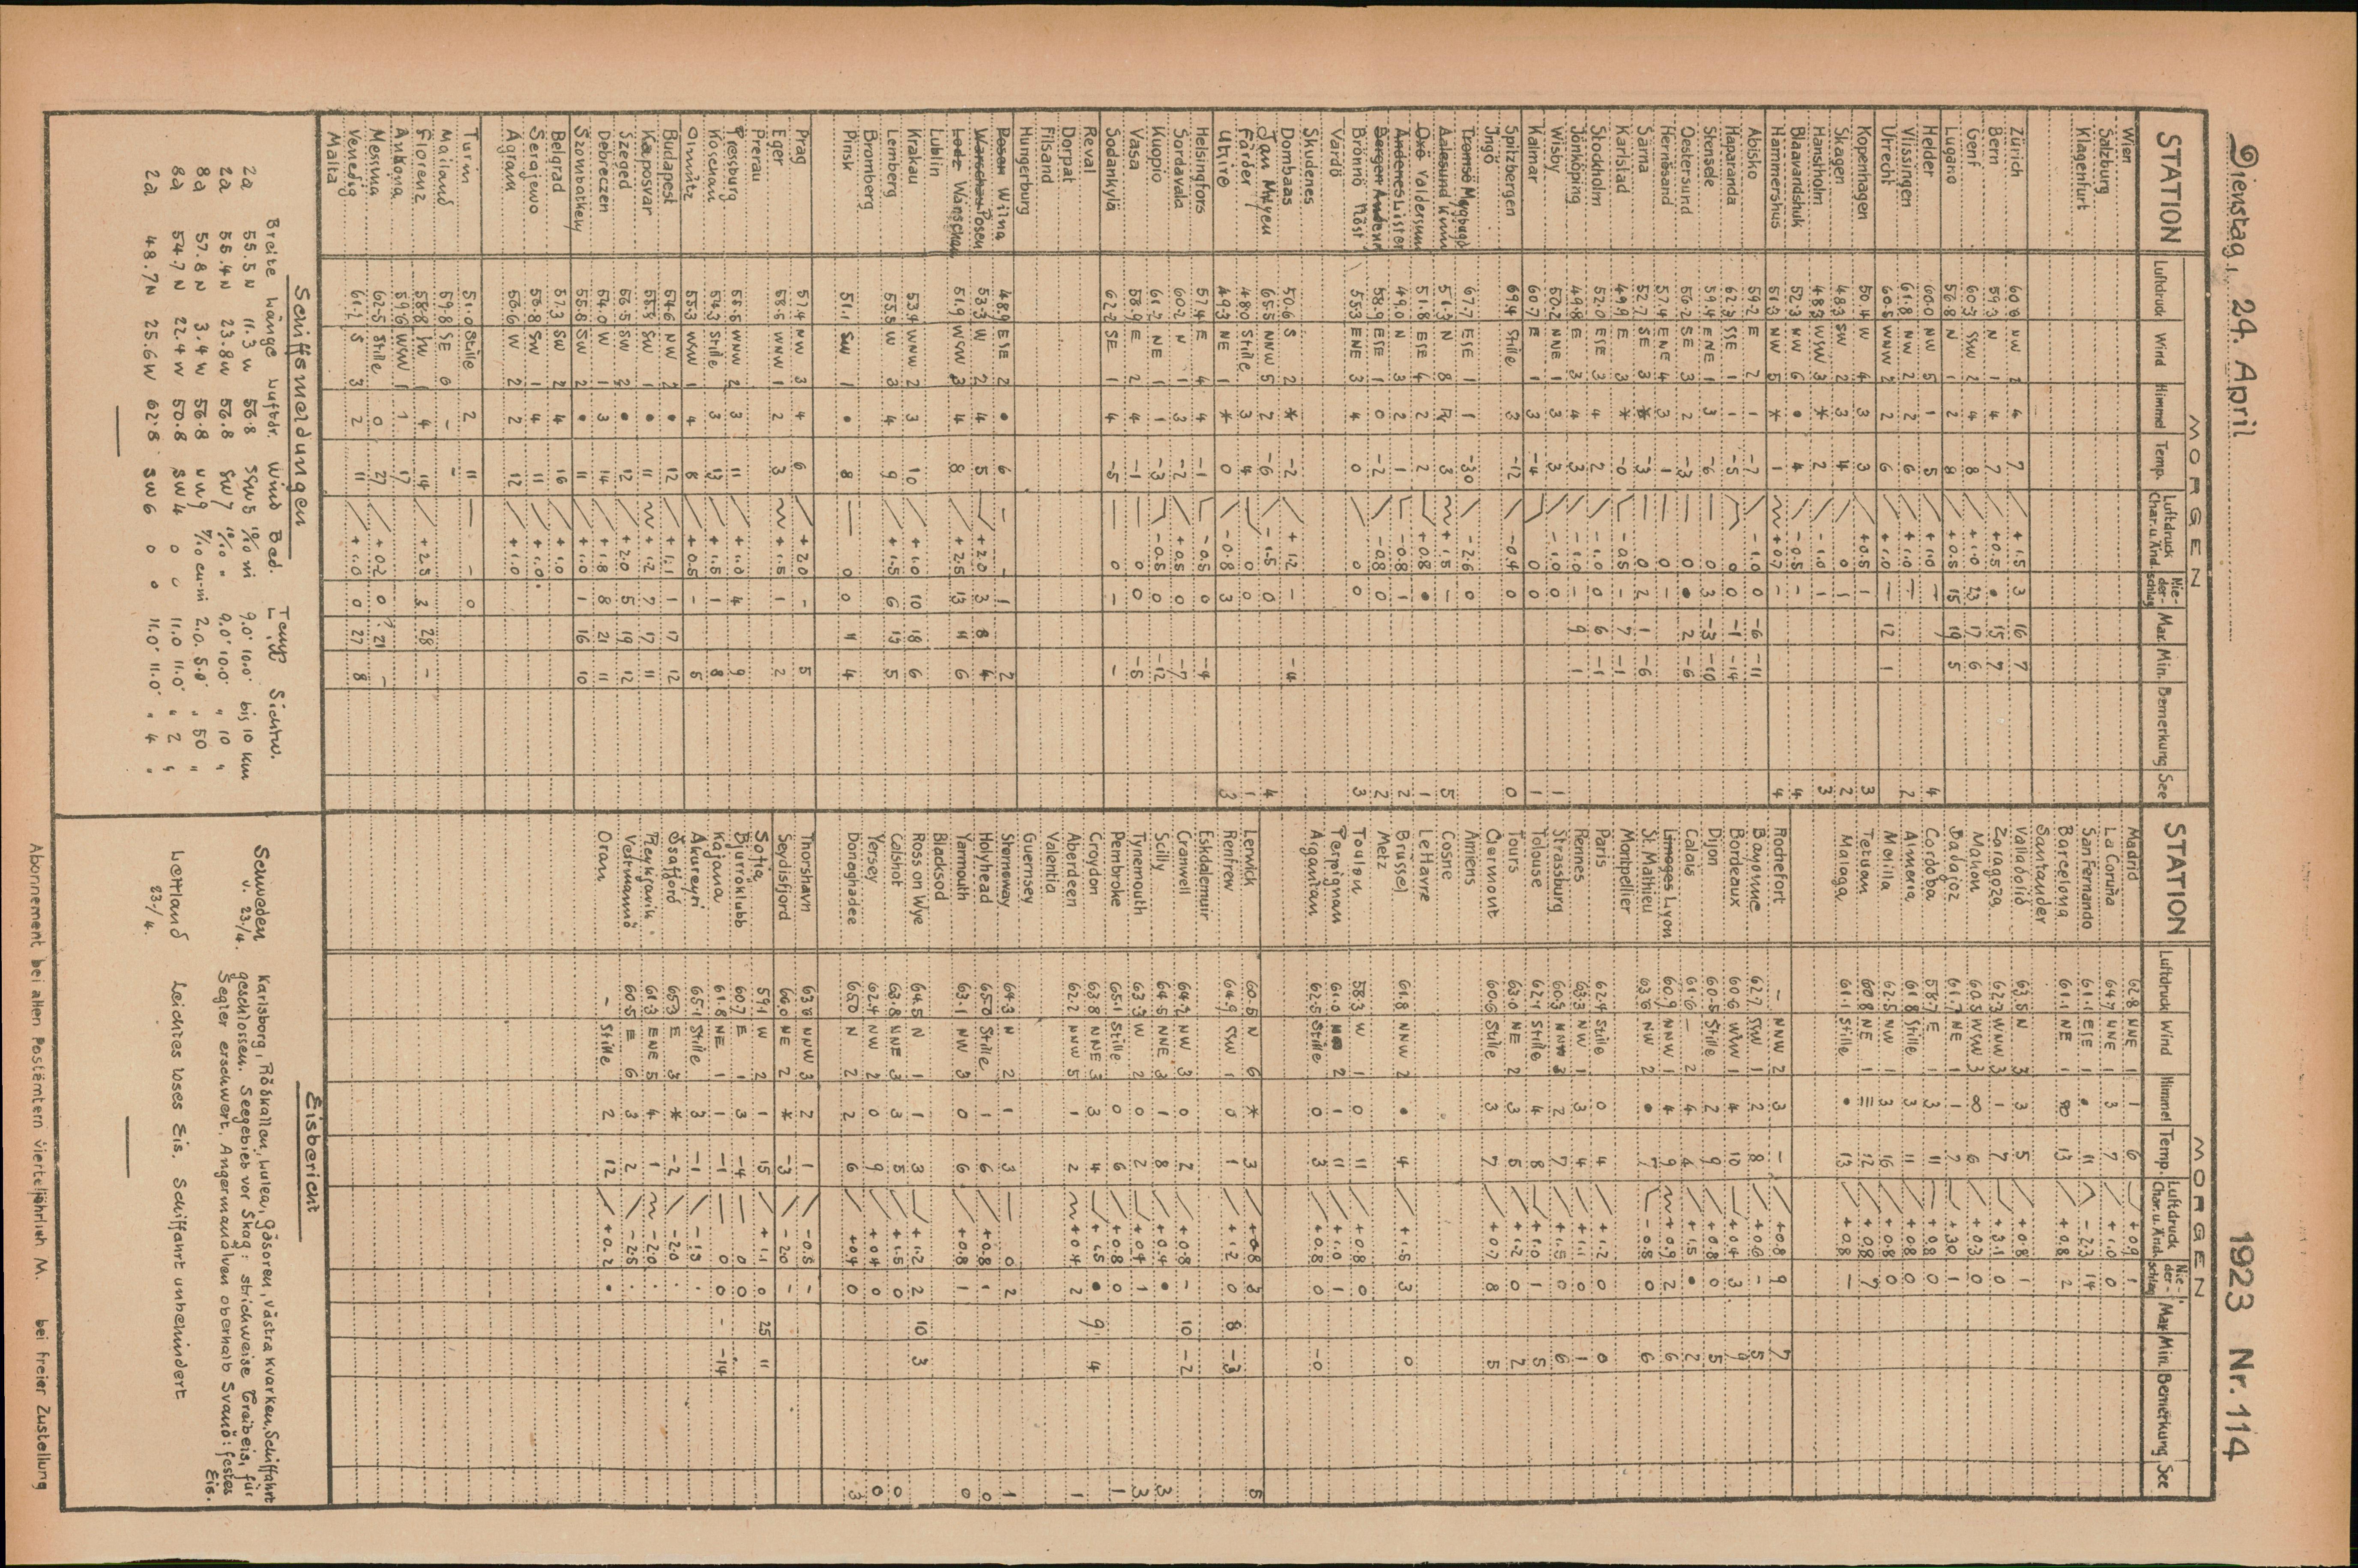 Dienstag, 24. April 1923 Nr. 114
MORGEN
STATION Luftdruck Wind Himmel Temp. Luftdruck Char. u. Änd. Nie-der-schlag Max. Min. Bemerkung See
Wien
Salzburg
Klagenfurt
Zürich 60.6 NW 2 4 7 +1.5 3 16 7
Bern 59.3 N 1 4 7 +0.5 • 15 7
Genf 60.3 SSW 2 4 8 +1.0 23 17 6
Lugano 56.8 N 1 2 8 +0.5 15 19 5
Helder 60.0 NW 5 1 5 +1.0 4
Vlissingen 61.8 NW 2 2 6 +1.0 2
Utrecht 60.5 WNW 2 2 6 +1.0 12 1
Kopenhagen 50.4 W 4 3 3 +0.5 1 3
Skagen 48.3 SW 2 3 4 0 1 2
Hansholm 48.3 WSW 4 * 2 -1.0 1 3
Blaavandshuk 52.3 NW 6 • 4 -0.5 - 4
Hammershus 51.3 NW 5 * 1 +0.7 - 4
Abisko 59.2 E 2 1 -7 -1.0 0 -6 -11
Haparanda 62.3 E 1 1 -5 0 1 -1 -14
Stensele 59.4 ENE 1 3 -6 0 3 -3 -10
Oestersund 56.2 SE 3 2 -3 0 • 2 -6
Hernösand 57.4 ENE 4 3 1 0 -
Särna 52.7 SE 3 * -3 0 2 1 -6
Karlstad 49.9 E 3 * -0 -0.5 - 7 -1
Stockholm 52.0 ESE 3 4 2 -1.0 - 6 -1
Jönköping 49.8 E 3 4 3 -1.0 - 9 1
Wisby 50.2 NNE 1 3 3 -1.0 0 1
Kalmar 60.7 E 1 3 -4 0 0 1
Spitzbergen 69.4 Stille 3 -12 -0.4 0 0
Ingö
Tromsö Mygbugd 67.7 ESE 1 1 -30 -2.6
Aalesund Kinn 51.3 N 8 3 +1.5 - 5
Oxö Valdersund 51.8 ESE 4 2 2 +0.8 • 1
Andenes Lister 49.0 N 3 2 1 -0.8 1 2
Bergen Andenes 58.9 ESE 1 0 -2 -0.8 0 2
Brönnö Röst 55.3 ENE 3 4 0 0 0 3
Vardö
Skudenes
Dombaas 50.6 S 2 * -2 +1.2 - -4
Jan Mayen 65.5 NNW 5 2 -6 -1.5 0 4
Färder 48.0 Stille 3 4 0 0 1
Utsire 49.3 NE 1 * 0 -0.8 3 3
Helsingfors 57.4 E 4 4 -1 -0.5 0 -4
Sordavala 60.2 N 1 3 -2 +0.5 0 -7
Kuopio 61.2 NE 1 1 -3 -0.5 0 -12
Vasa 58.9 E 2 4 -1 0 0 -8
Sodankylä 62.2 SE 1 4 -5 0 - -
Reval
Dorpat
Filsand
Hungerburg
Posen Wilna 48.9 ESE 2 • 6 - - 1 2
Warschau Posen 53.3 W 2 4 5 +2.0 3 8 4
Lodz Warschau 51.9 WSW 3 4 8 +2.5 13 11 6
Lublin
Krakau 53.4 WNW 2 3 10 +1.0 10 18 6
Lemberg 55.5 W 3 4 9 +1.5 6 13 5
Bromberg
Pinsk 51.1 SW 1 • 8 0 0 11 4
Prag 57.4 NW 3 4 6 +2.0 - 5
Eger 58.5 WNW 1 2 3 +1.5 1 2
Prerau
Pressburg 55.5 WNW 2 3 11 +1.0 4 9
Köschau 54.3 Stille 3 13 +1.5 1 8
Olmütz 55.3 WSW 1 4 8 +0.5 - 5
Budapest 54.6 NW 2 • 12 +1.1 1 17 12
Kaposvar 55.5 SW 1 • 11 +1.2 7 17 11
Szeged 56.5 SW 2 • 12 +2.0 5 19 12
Debreczen 54.0 W 1 3 14 +1.8 8 21 11
Szombatkely 55.8 SW 2 • 11 +1.0 1 16 10
Belgrad 57.3 SW 2 4 16 +1.0
Serajewo 56.8 SW 1 4 11 +1.0
Agram 56.6 W 2 2 12 +1.0
Turin 51.0 Stille 2 11 - 0
Mailand 59.8 SE 0 - -
Florenz 58.8 W 1 4 14 +2.5 3 28 -
Ankona 59.6 WSW 1 1 17
Messina 62.5 Stille 0 27 +0.2 0 21 -
Venedig 61.2 S 3 2 11 +1.0 0 27 8
Malta
Schiffsmeldungen
Breite Länge Luftdr. Wind Bed. Temp L Sichtw.
2a 55.5 N 11.3 W 56.8 SSW 5 10/10 ni 9.0° 10.0° bis 10 km
2a 56.4 N 23.8 W 56.8 SW 7 10/10 " 9.0° 10.0° " 10 "
8a 57.8 N 3.4 W 56.8 NW 9 9/10 cu-ni 2.0 5.0° " 50 "
8a 54.7 N 22.4 W 50.8 SW 4 0 0 11.0 11.0° " 2 "
2a 48.7 N 25.6 W 62.8 SW 6 0 0 11.0° 11.0° " 4 "
MORGEN
STATION Luftdruck Wind Himmel Temp. Luftdruck Char. u. Änd. Nie-der-schlag Max Min. Bemerkung See
Madrid 62.8 NNE 1 1 6 +0.9 1
La Coruña 64.7 NNE 1 3 7 +1.0 0
San Fernando 61.1 ENE 1 • 11 -2.3 14
Barcelona 61.1 NE 1 13 +0.8 2
Santander
Valladolid 63.5 N 3 3 5 +0.8 1
Zaragoza 62.3 WNW 3 1 7 +3.1 0
Mahon 60.5 WSW 3 ∞ 6 +0.3 0
Badajoz 61.7 NE 1 1 7 +3.0 1
Cordoba 58.7 E 1 3 11 +0.8 0
Almeria 61.8 Stille 3 11 +0.8 0
Melilla 62.5 NW 1 3 16 +0.8 0
Tetuan 60.8 NE 1 ≡ 12 +0.8 7
Malaga 61.1 Stille • 13 +0.8 -
Rochefort - NNW 2 3 - +0.8 9 7
Bayonne 62.7 SSW 1 2 8 +0.6 - 5
Bordeaux 60.6 WSW 1 4 10 +0.4 3 9
Dijon 60.5 Stille 2 9 +0.8 0 5
Calais 61.6 - 2 4 4 +1.5 • 2
Limoges Lyon 60.9 NNW 1 4 9 +0.9 2 6
St. Mathieu 63.6 NW 2 • 7 -0.8 0 6
Montpellier
Paris 62.4 Stille 0 4 +1.2 0 0
Rennes 63.3 NW 1 3 4 +1.1 0 1
Strassburg 60.3 NNW 3 2 7 +1.5 0 6
Tolouse 62.1 Stille 4 8 +1.0 1 5
Tours 63.0 NE 2 3 5 +1.2 0 2
Clermont 60.6 Stille 3 7 +0.7 8 5
Amiens
Cosne
Le Havre
Brüssel 61.8 NNW 2 • 4 +1.5 3 0
Metz
Toulon 58.3 W 1 0 11 +0.8 0
Perpignan 61.0 2 1 11 +1.0 1
Agantan 62.5 Stille 0 3 +0.8 0 -0
Lerwick 60.5 N 6 * 3 +0.8 3 5
Renfrew 64.9 SSW 1 0 1 +1.2 0 8 -3
Eskdalemuir
Cranwell 64.2 NW 3 0 2 +0.8 - 10 -2
Scilly 64.5 NNE 3 1 8 +0.4 • 3
Tynemouth 63.3 W 2 0 2 +0.4 1 3
Pembroke 65.1 Stille 0 6 +0.8 0 1
Croydon 63.8 NNE 3 3 4 +1.5 • 9 4
Aberdeen 62.2 NNW 5 1 2 +0.4 2 1
Valentia
Guernsey
Storneway 64.3 N 2 1 3 0 2 1
Holyhead 65.0 Stille 1 6 +0.8 1 0
Yarmouth 63.1 NW 3 0 6 +0.8 1 0
Blacksod
Ross on Wye 64.5 N 1 1 3 +1.2 2 10 3
Calshot 63.8 NNE 3 3 5 +1.5 0 0
Yersey 62.4 NW 2 0 9 +0.4 0 0
Donaghadee 65.0 N 2 2 6 +0.4 0 3
Thorshavn 63.6 NNW 3 2 1 -0.5 -
Seydisfjord 66.0 NE 2 * -3 -2.0 -
Sofia 59.1 W 2 1 15 +1.1 0 25 11
Bjuröklubb 60.7 E 1 3 -4 0 0
Kajana 61.8 NE 1 1 -1 0 0 - -14
Akureyri 65.1 Stille 3 -1 -1.3 .
Isafjord 65.3 E 3 * -2 -2.0 .
Reykjavik 61.3 ENE 5 4 1 -2.0 .
Vestmannö 60.5 E 6 3 2 -2.5 .
Oran - Stille 2 12 +0.2 •
Eisbericht
Schweden v. 23./4. Karlsborg, Röskallen, Lulea, Gåsoren, Västra Kvarken, Schiffahrt
geschlossen. Seegebiet vor Skag: strichweise Treibeis, für
Segler erschwert. Angermanälven oberhalb Svanö: festes
Eis.
Lettland 23./4. Leichtes loses Eis. Schiffahrt unbehindert
Abonnement bei allen Postämtern vierteljährlich M. bei freier Zustellung